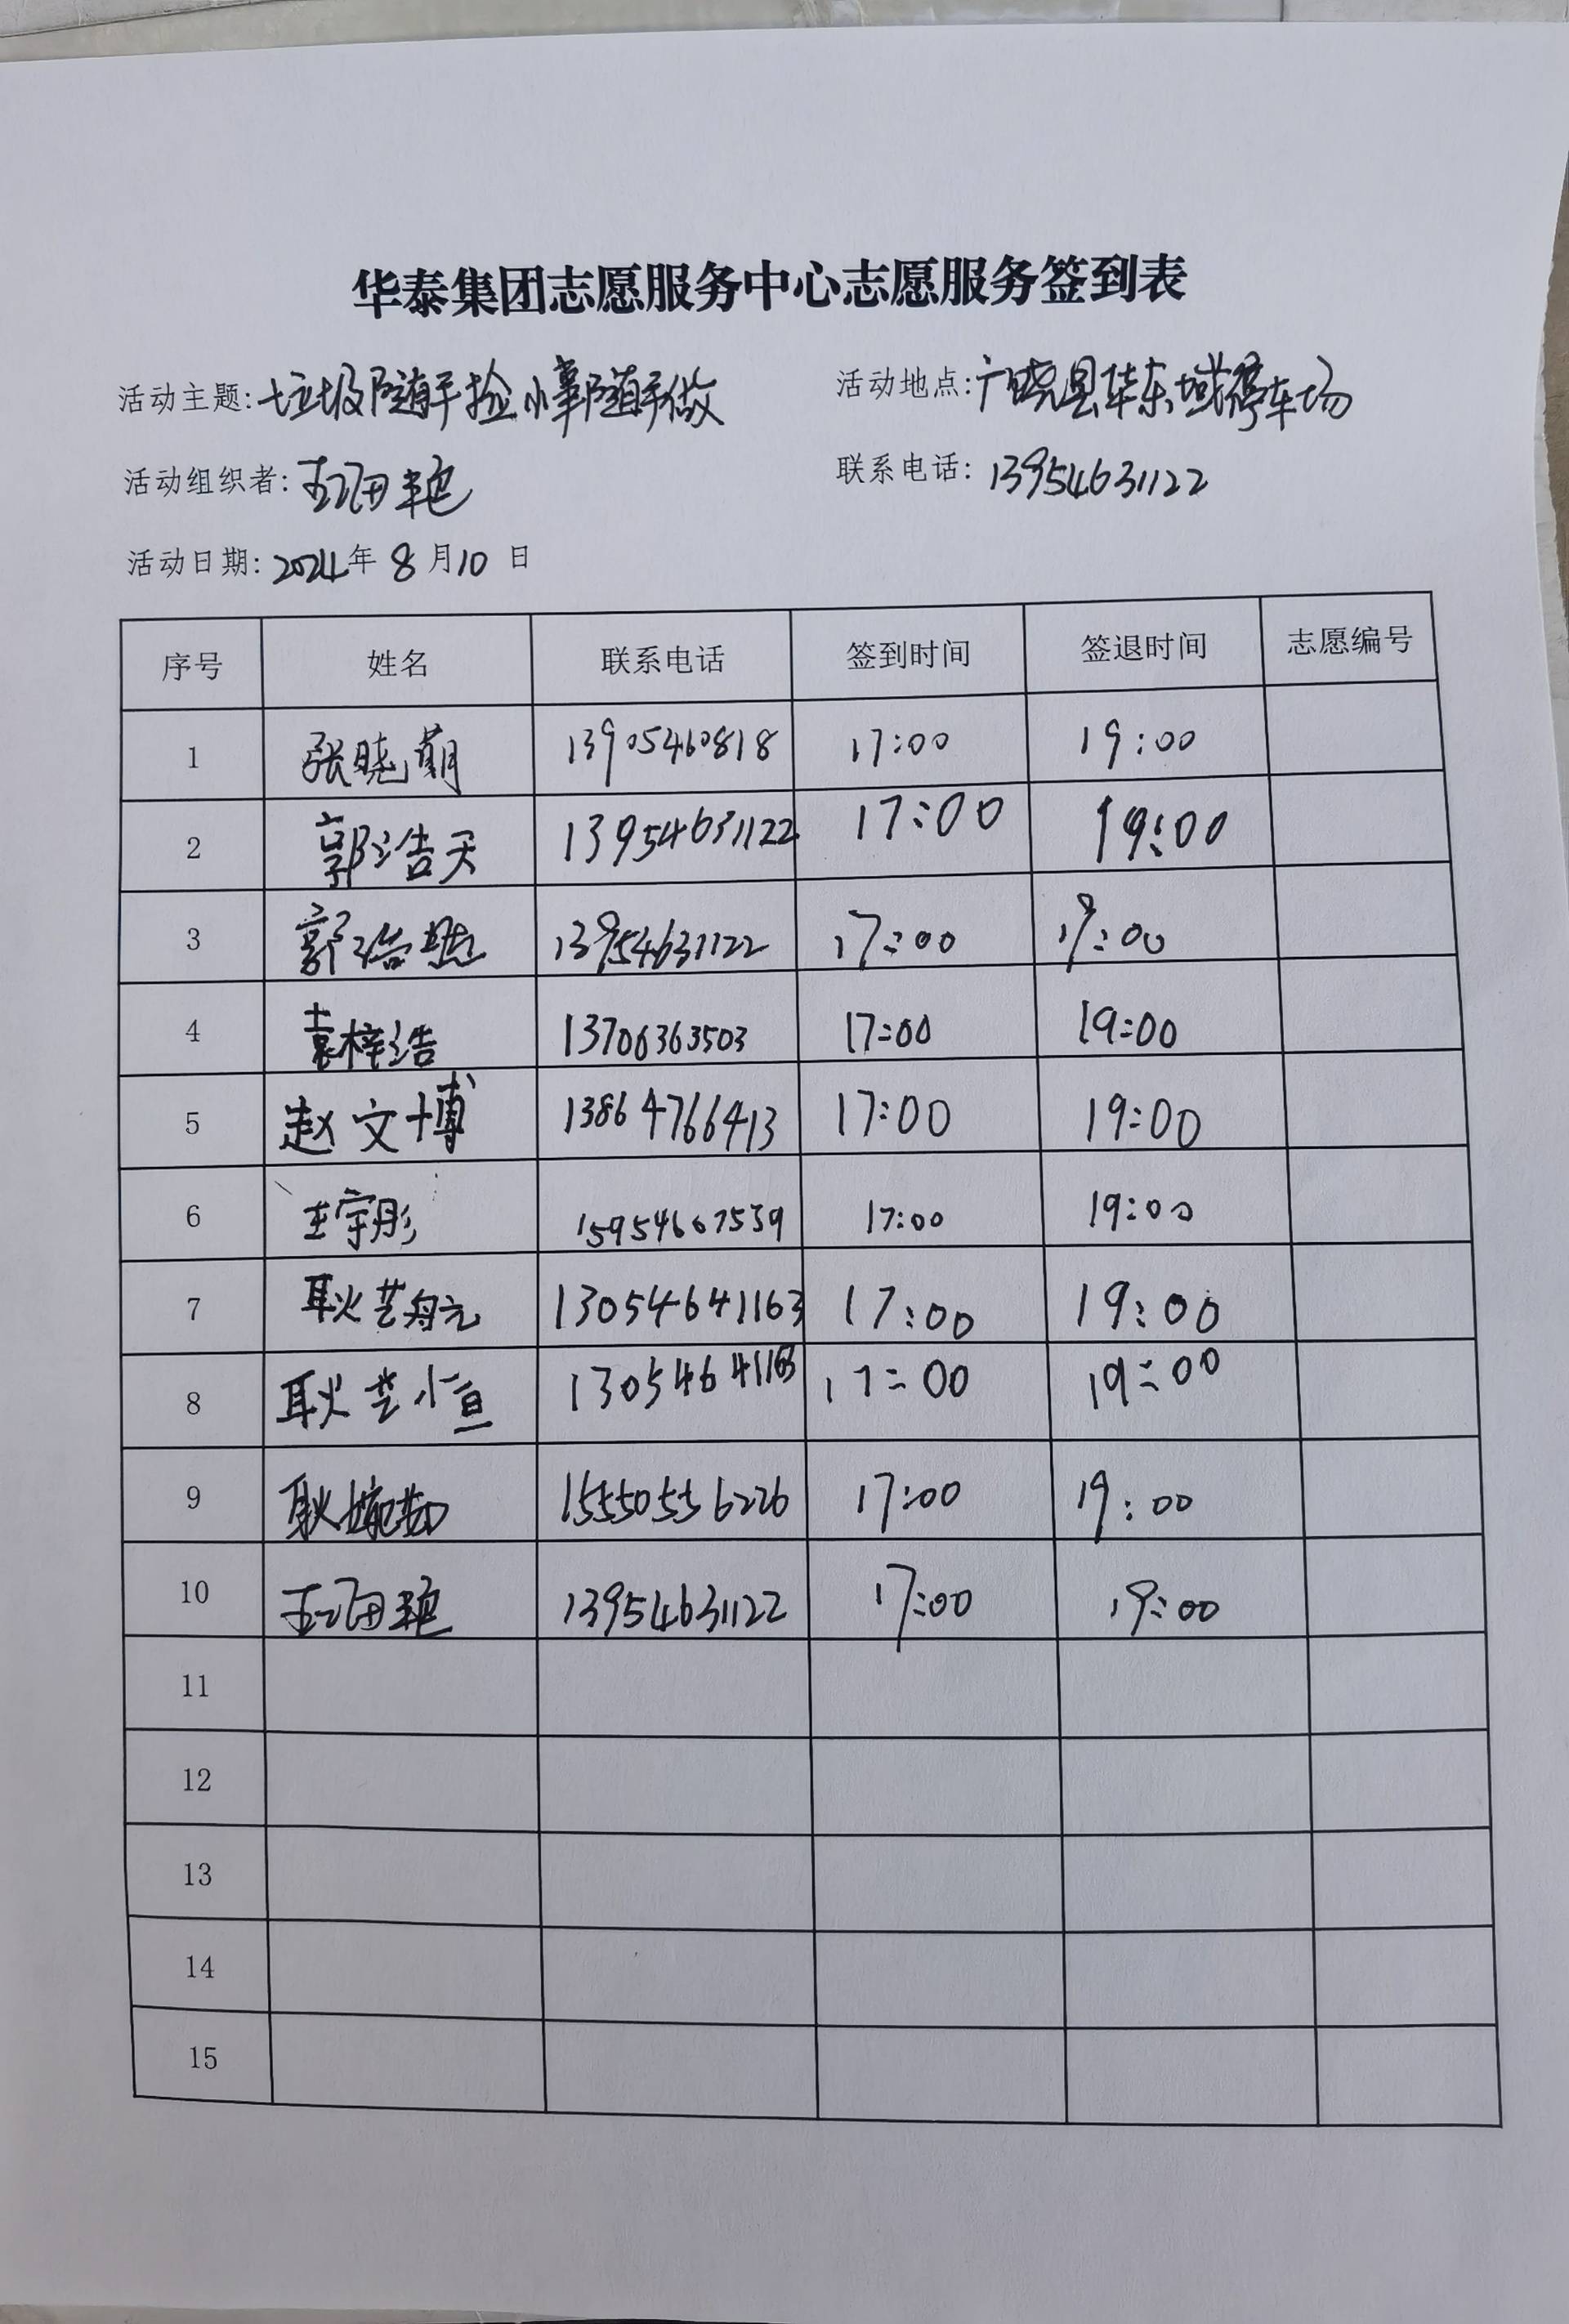 华泰集团志愿服务中心志愿服务签到表
活动主题:垃圾随手捡 小事随手做 活动地点:广饶县华东城停车场
活动组织者:王 艳 联系电话:13954631122
活动日期:2024年8月10日
序号 姓名 联系电话 签到时间 签退时间 志愿编号
1 张晓萌 13905460818 17:00 19:00
2 郭浩天 13954631122 17:00 19:00
3 郭浩然 13954631122 17:00 19:00
4 袁梓浩 13706363503 17:00 19:00
5 赵文博 13864766413 17:00 19:00
6 王宇彤 15954667539 17:00 19:00
7 耿艺 13054641163 17:00 19:00
8 耿艺恒 13054641163 17:00 19:00
9 耿 15550556226 17:00 19:00
10 王 艳 13954631122 17:00 19:00
11
12
13
14
15